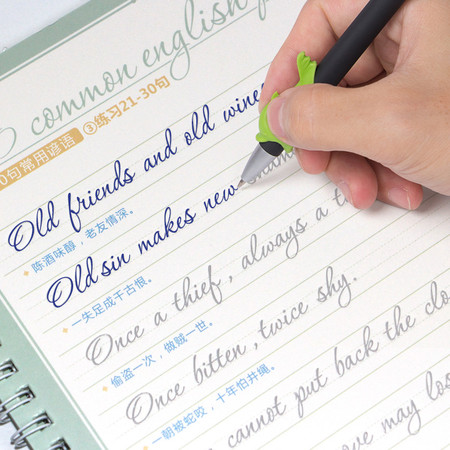 common english
0句常用谚语 ③练习21-30句
Old friends and old wines
陈酒味醇，老友情深。
Old sin makes new
一失足成千古恨。
Once a thief, always a
偷盗一次，做贼一世。
Once bitten, twice shy.
一朝被蛇咬，十年怕井绳。
cannot put back the
may